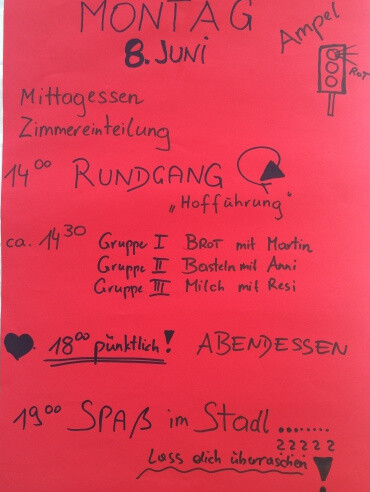 MONTAG
8. JUNI
Ampel
ROT
Mittagessen
Zimmereinteilung
14⁰⁰ RUNDGANG
„Hofführung“
ca. 14³⁰ Gruppe I BROT mit Martin
Gruppe II Basteln mit Anni
Gruppe III Milch mit Resi
18⁰⁰ pünktlich! ABENDESSEN
19⁰⁰ SPAß im Stadl ........
?????
Lass dich überraschen!